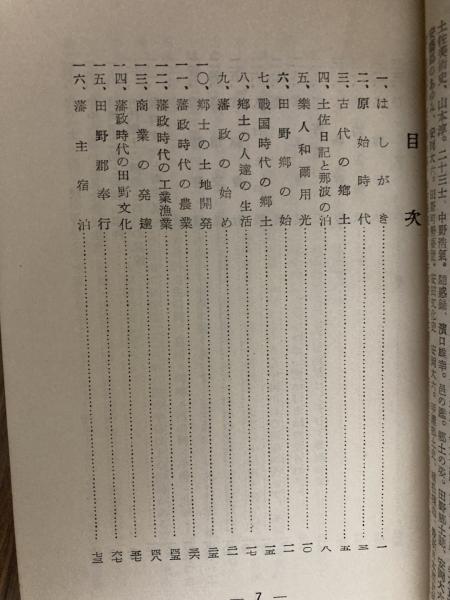 土佐美術史、山本淳。二十三士、
濱口雄幸。
目次
一、はしがき……一
二、原始時代……三
三、古代の郷土……五
四、土佐日記と那波の泊……八
五、樂人和爾用光……一〇
六、田野郷の始……一一
七、戰国時代の郷土……一五
八、郷土の人達の生活……一七
九、藩政の始め……二一
一〇、郷士の土地開発……二五
一一、藩政時代の農業……三六
一二、藩政時代の工業漁業……四五
一三、商業の発達……四八
一四、藩政時代の田野文化……五七
一五、田野郡奉行……六七
一六、藩主宿泊……七三
— 7 —